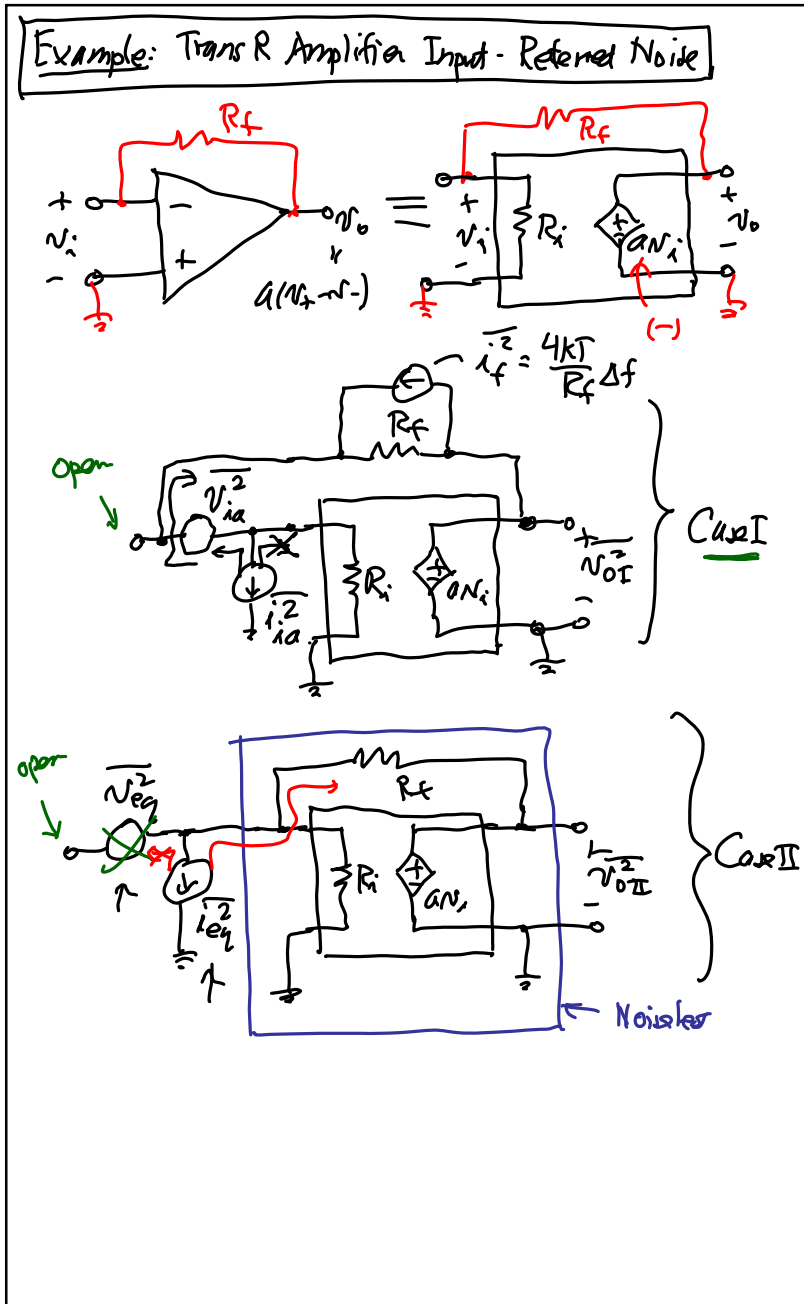 Example: Trans R Amplifier Input-Referred Noise
R_f
R_f
+
v_i
-
-
+
v_o
a(v_+-v_-)
≡
+
v_i
-
R_i
+
-
av_i
(-)
+
v_o
-
\overline{i_f^2} = \frac{4kT}{R_f} Δf
R_f
open
\overline{v_{ia}^2}
\overline{i_{ia}^2}
R_i
+
-
av_i
+
\overline{v_{oI}^2}
-
Case I
open
\overline{v_{eq}^2}
\overline{i_{eq}^2}
R_f
R_i
+
-
av_i
+
\overline{v_{oII}^2}
-
Case II
Noiseless